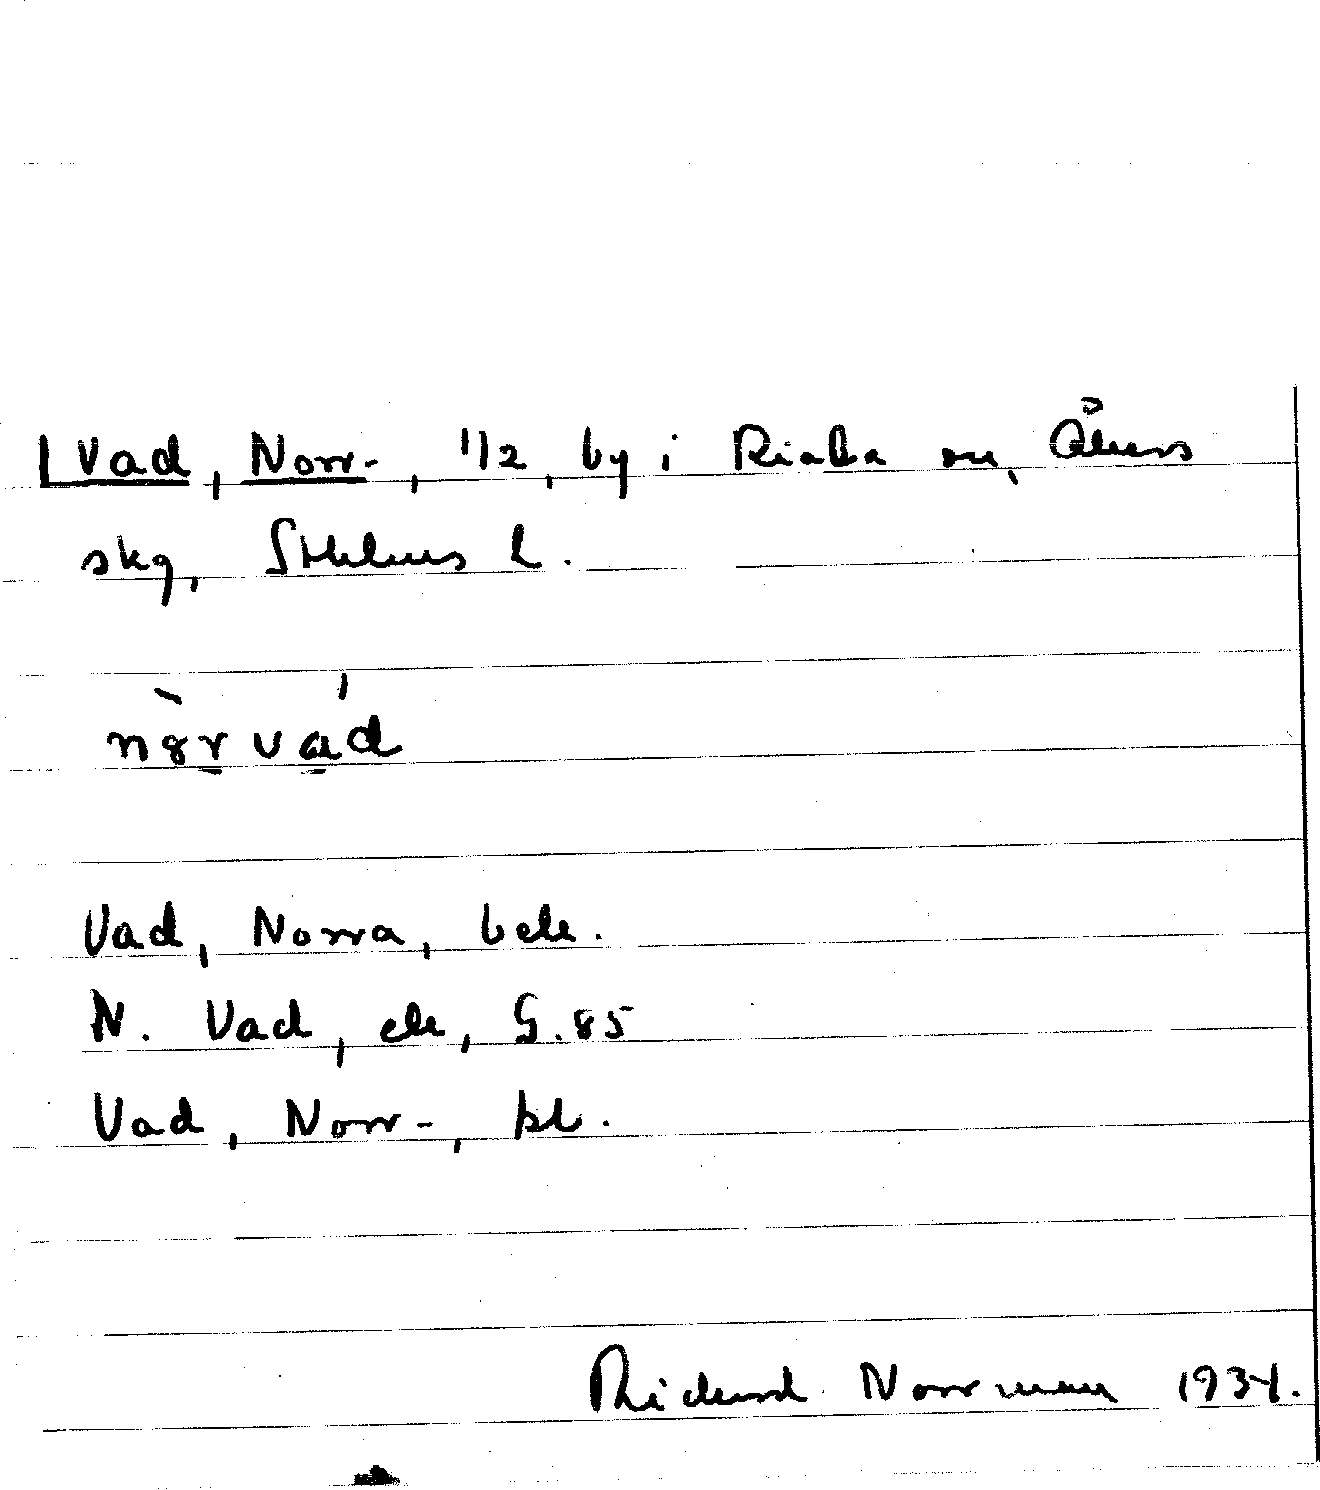 Vad, Norr-, 1/2, by i Riala sn, Åkers
skg, Sthlms l.
Vad, Norra, bek.
N. Vad, ek, G.85
Vad, Norr-, pl.
Rickard Norrman 1934.